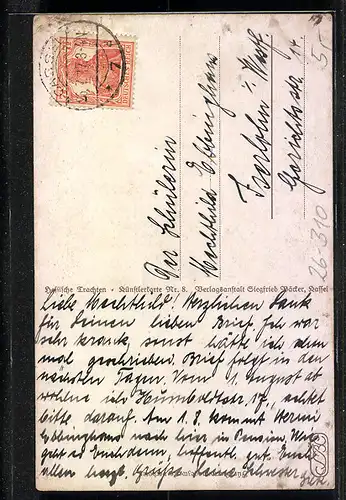 Der Schülerin
Mechthild Ebbinghaus
Iserlohn i/Westf.
5,-
26 310
Hessische Trachten • Künstlerkarte Nr. 8. Verlagsanstalt Siegfried Döcker, Kassel
Liebe Mechthild! Herzlichen Dank
für Deinen lieben Brief. Ich war
sehr krank, sonst hätte ich
mal geschrieben. Brief folgt in den
nächsten Tagen. Vom 1. August ab
wohne ich Humboldtstr. 17, achtet
bitte darauf. Am 1.8. kommt
Ebbinghaus nach hier in Pension. Wie
geht es Euch denn, hoffentl. gut. Euch
allen herzl. Grüsse Deine Schwester